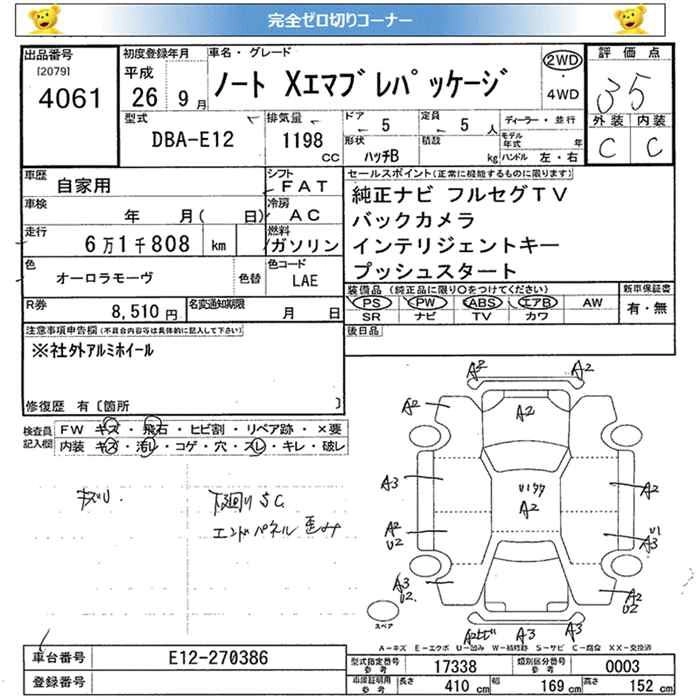 完全ゼロ切りコーナー
出品番号 初度登録年月 車名・グレード 2WD 評価点
[2079] 4061 平成 26 9月 ノート Xエマブレパッケージ ・ 4WD 35
型式 DBA-E12 排気量 1198 CC ドア 5 定員 5 人 ディーラー・並行
形状 ハッチB 積載 kg モデル年式 年 ハンドル 左・右
外装 内装
C C
車歴 自家用 シフト FAT セールスポイント(正常に機能するものに限ります)
車検 年 月( 日) 冷房 AC 純正ナビ フルセグTV
走行 6万1千808 km 燃料 ガソリン バックカメラ
インテリジェントキー
色 オーロラモーヴ 色替 色コード LAE プッシュスタート
R券 8,510円 名変通知期限 月 日
装備品(純正品に限り○をつけてください) 新車保証書
PS PW ABS エアB AW 有・無
SR ナビ TV カワ
注意事項申告欄(不具合内容等は具体的に記入して下さい) 後日品
※社外アルミホイール
修復歴 有〔箇所 〕
検査員記入欄 FW キズ・飛石・ヒビ割・リペア跡・×要
内装 キズ・汚レ・コゲ・穴・スレ・キレ・破レ
下廻りSC
エンドパネル歪み
A2 A2
A2 A2
A3 A2
A2
A2 U2 U1 A3
A3 U2 A2 U2
A3 A3
スペア
A-キズ E-エクボ U-凹み W-補修跡 S-サビ C-腐食 XX-交換済
車台番号 E12-270386
登録番号
型式指定番号 参考 17338 類別区分番号 参考 0003
車庫証明用 参考 長さ 410 cm 幅 169 cm 高さ 152 cm